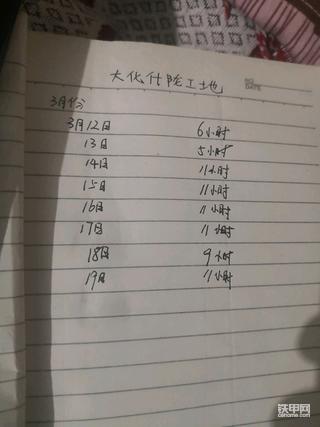 大化什陇工地
NO.
DATE
3月份
3月12日 6小时
13日 5小时
14日 11小时
15日 11小时
16日 11小时
17日 11小时
18日 9小时
19日 11小时
铁甲网